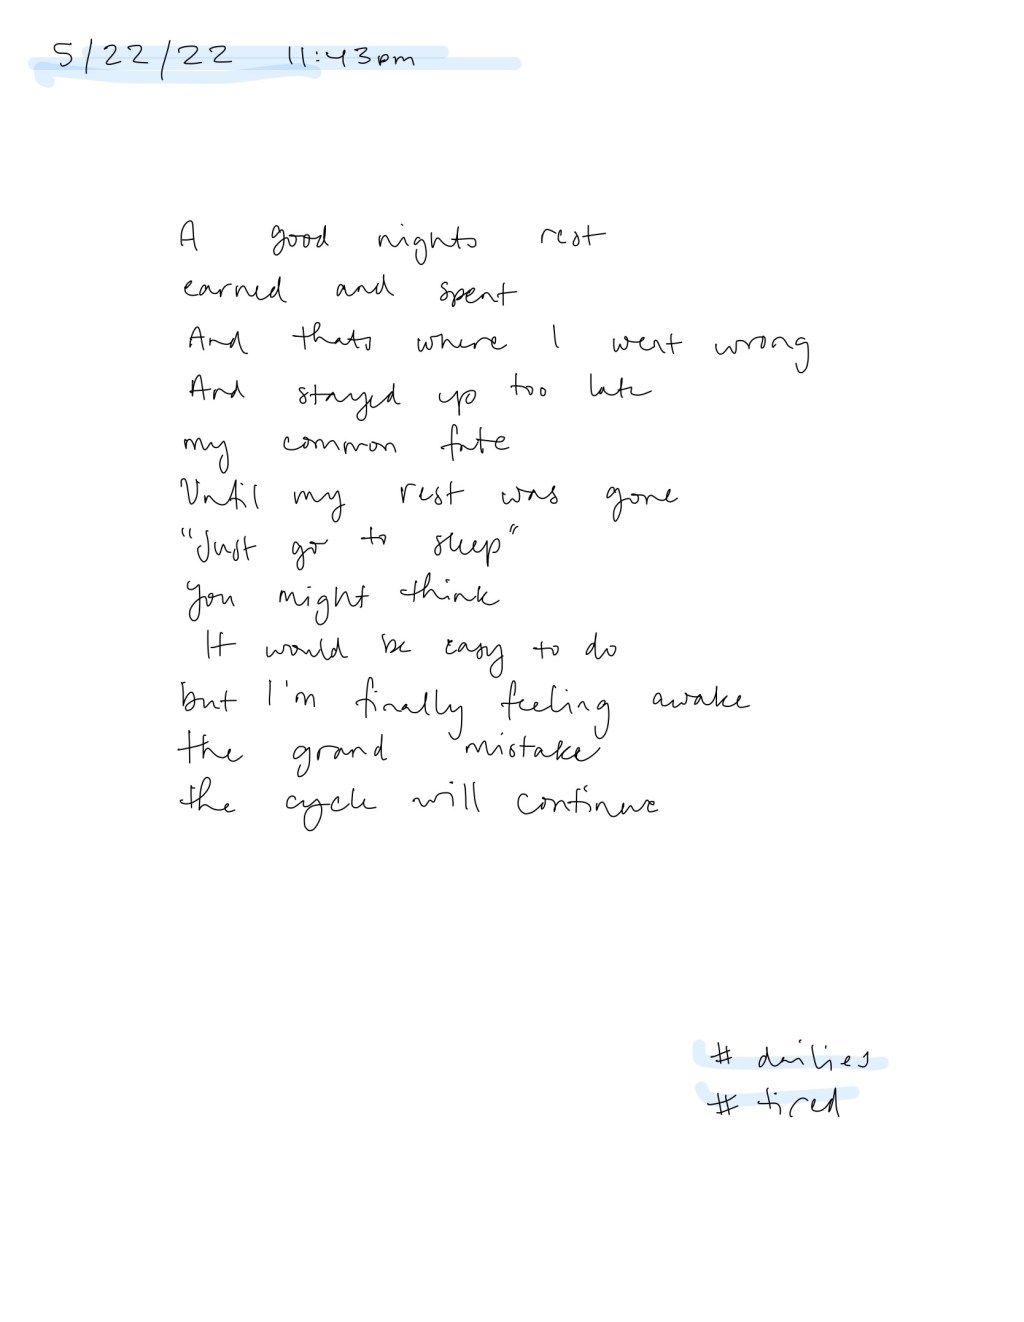 5/22/22 11:43pm
A good nights rest
earned and spent
And thats where I went wrong
And stayed up too late
my common fate
Until my rest was gone
"Just go to sleep"
you might think
It would be easy to do
but I'm finally feeling awake
the grand mistake
the cycle will continue
# dailies
# tired